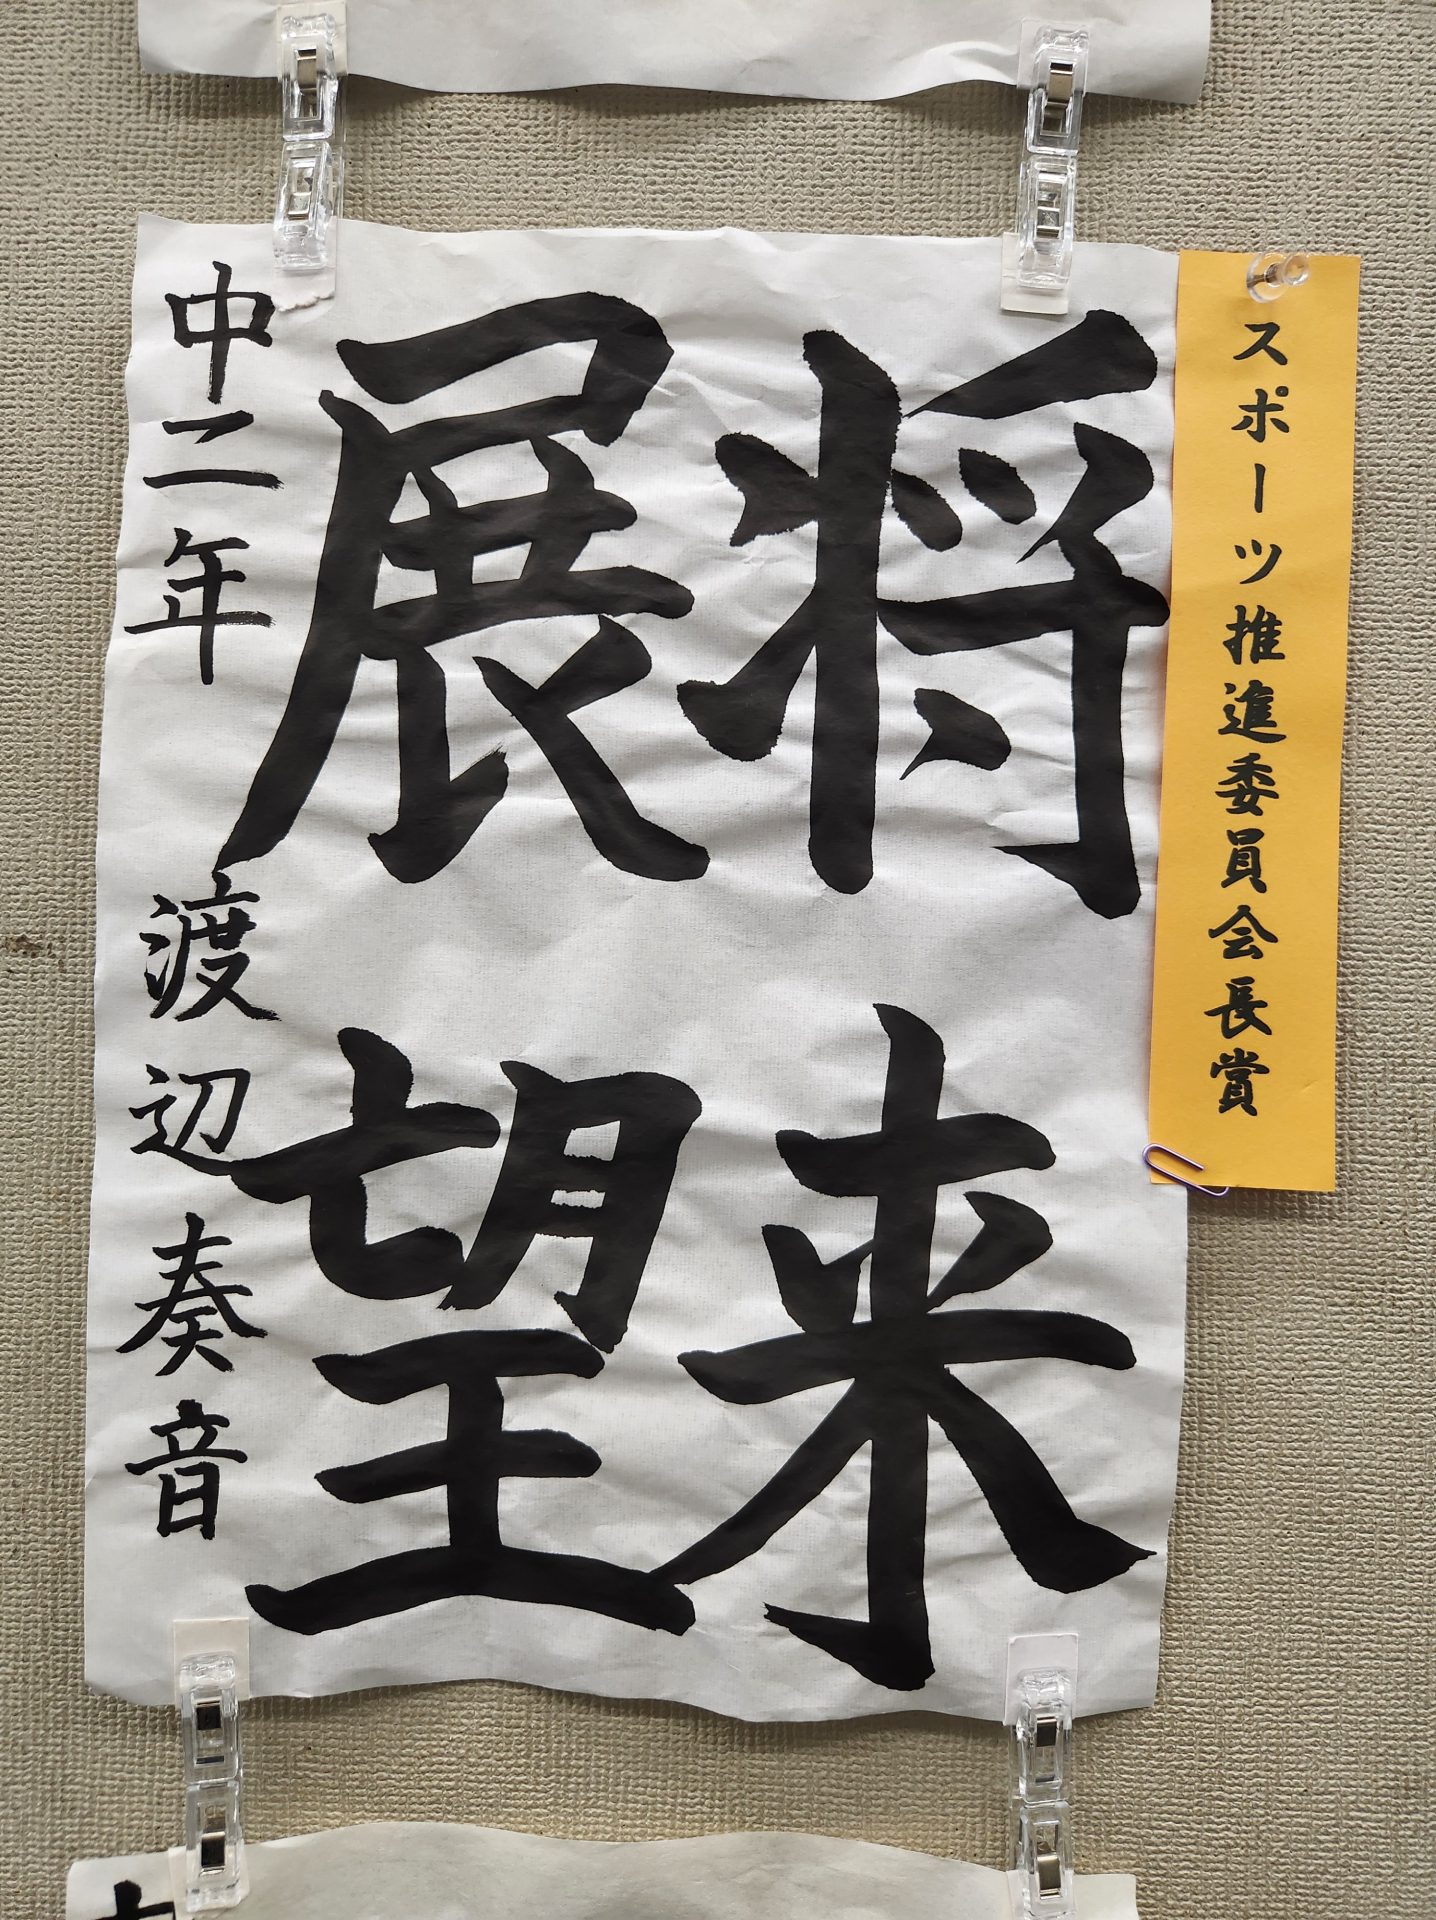 スポーツ推進委員会長賞
将来
展望
中二年 渡辺奏音